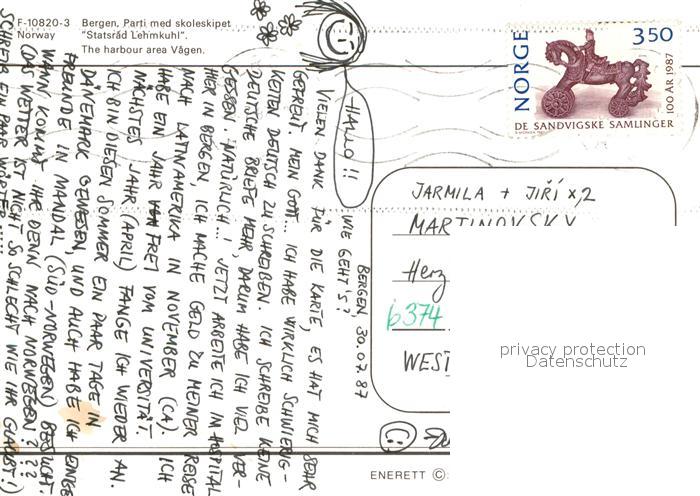 F-10820-3
Norway
Bergen, Parti med skoleskipet
"Statsråd Lehmkuhl".
The harbour area Vågen.
NORGE
350
100 ÅR 1987
DE SANDVIGSKE SAMLINGER
HALLO!!
BERGEN 30.07.87
WIE GEHT'S??
VIELEN DANK FÜR DIE KARTE, ES HAT MICH SEHR
GEFREUT. MEIN GOTT... ICH HABE WIRKLICH SCHWIERIG-
KEITEN DEUTSCH ZU SCHREIBEN. ICH SCHREIBE KEINE
DEUTSCHE BRIEFE MEHR, DARUM HABE ICH VIEL VER-
GESSEN. NATÜRLICH...! JETZT ARBEITE ICH IM HOSPITAL
HIER IN BERGEN, ICH MACHE GELD ZU MEINER REISE
NACH LATINAMERIKA IN NOVEMBER (CA). ICH
HABE EIN JAHR FREI VOM UNIVERSITÄT.
NÄCHSTES JAHR (APRIL) FANGE ICH WIEDER AN.
ICH BIN DIESEN SOMMER EIN PAAR TAGE IN
DÄNEMARK GEWESEN, UND AUCH HABE ICH EINIGE
FREUNDE IN MANDAL (SÜD-NORWEGEN) BESUCHT.
WANN KOMMT IHR DENN NACH NORWEGEN???
(DAS WETTER IST NICHT SO SCHLECHT WIE IHR GLAUBT!)
SCHREIB EIN PAAR WÖRTER......
JARMILA + JIŘÍ x,2
MARTINOVSKY
Herz
6374
WEST
privacy protection
Datenschutz
ENERETT ©: